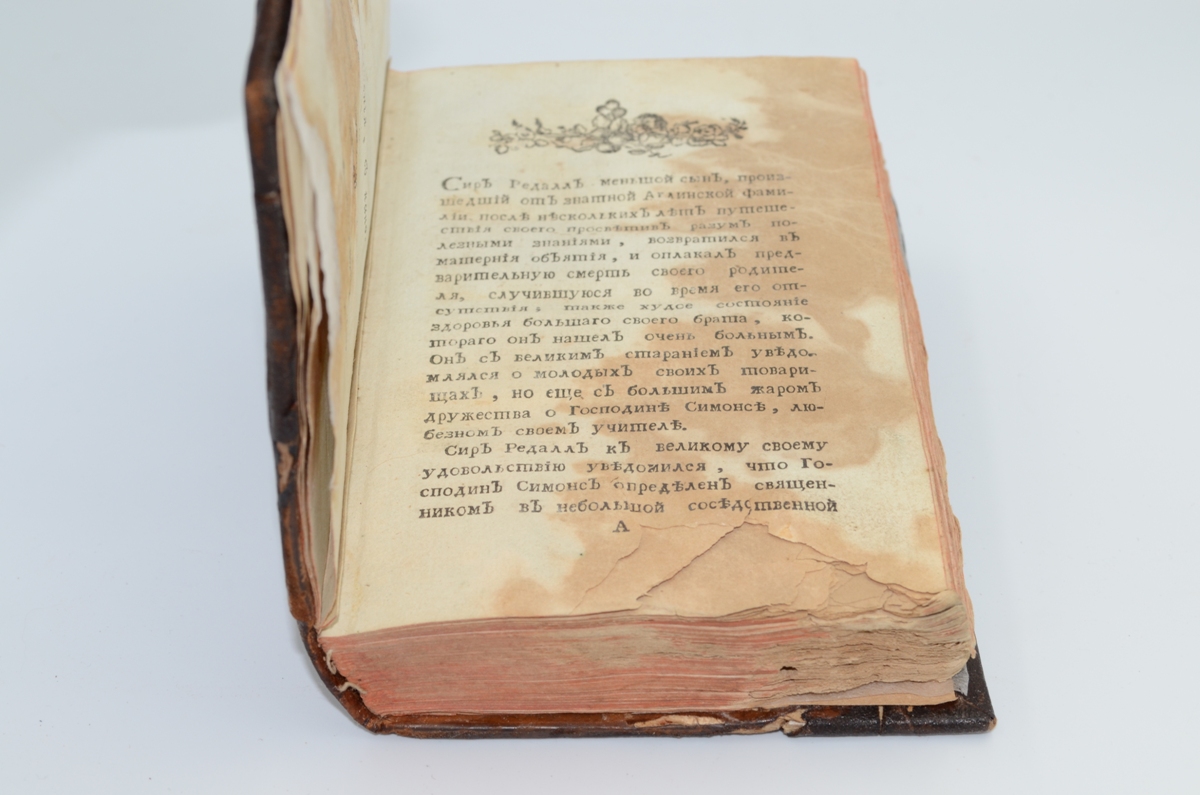 СирЪ РедаллЪ меньшой сынЪ, произ-
шедшій отЪ знатной Аглинской фами-
ліи, послѣ нѣсколькихЪ лѣтЪ путеше-
ствія своего просвѣтивЪ разумЪ по-
лезными знаніями, возвратился вЪ
матернія объятія, и оплакалЪ пред-
варительную смерть своего родите-
ля, случившуюся во время его от-
сутствія, также худое состояніе
здоровья большаго своего брата, ко-
тораго онЪ нашелЪ очень больнымЪ.
ОнЪ сЪ великимЪ стараніемЪ увѣдо-
млялся о молодыхЪ своихЪ товари-
щахЪ, но еще сЪ большимЪ жаромЪ
дружества о Господинѣ Симонсѣ, лю-
безномЪ своемЪ учителѣ.
СирЪ РедаллЪ кЪ великому своему
удовольствію увѣдомился, что Го-
сподинЪ СимонсЪ опредѣленЪ священ-
никомЪ вЪ небольшой сосѣдственной
А